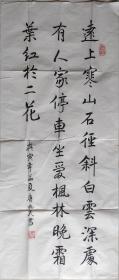 遠上寒山石徑斜白雲深處
有人家停車坐愛楓林晚霜
葉紅於二花